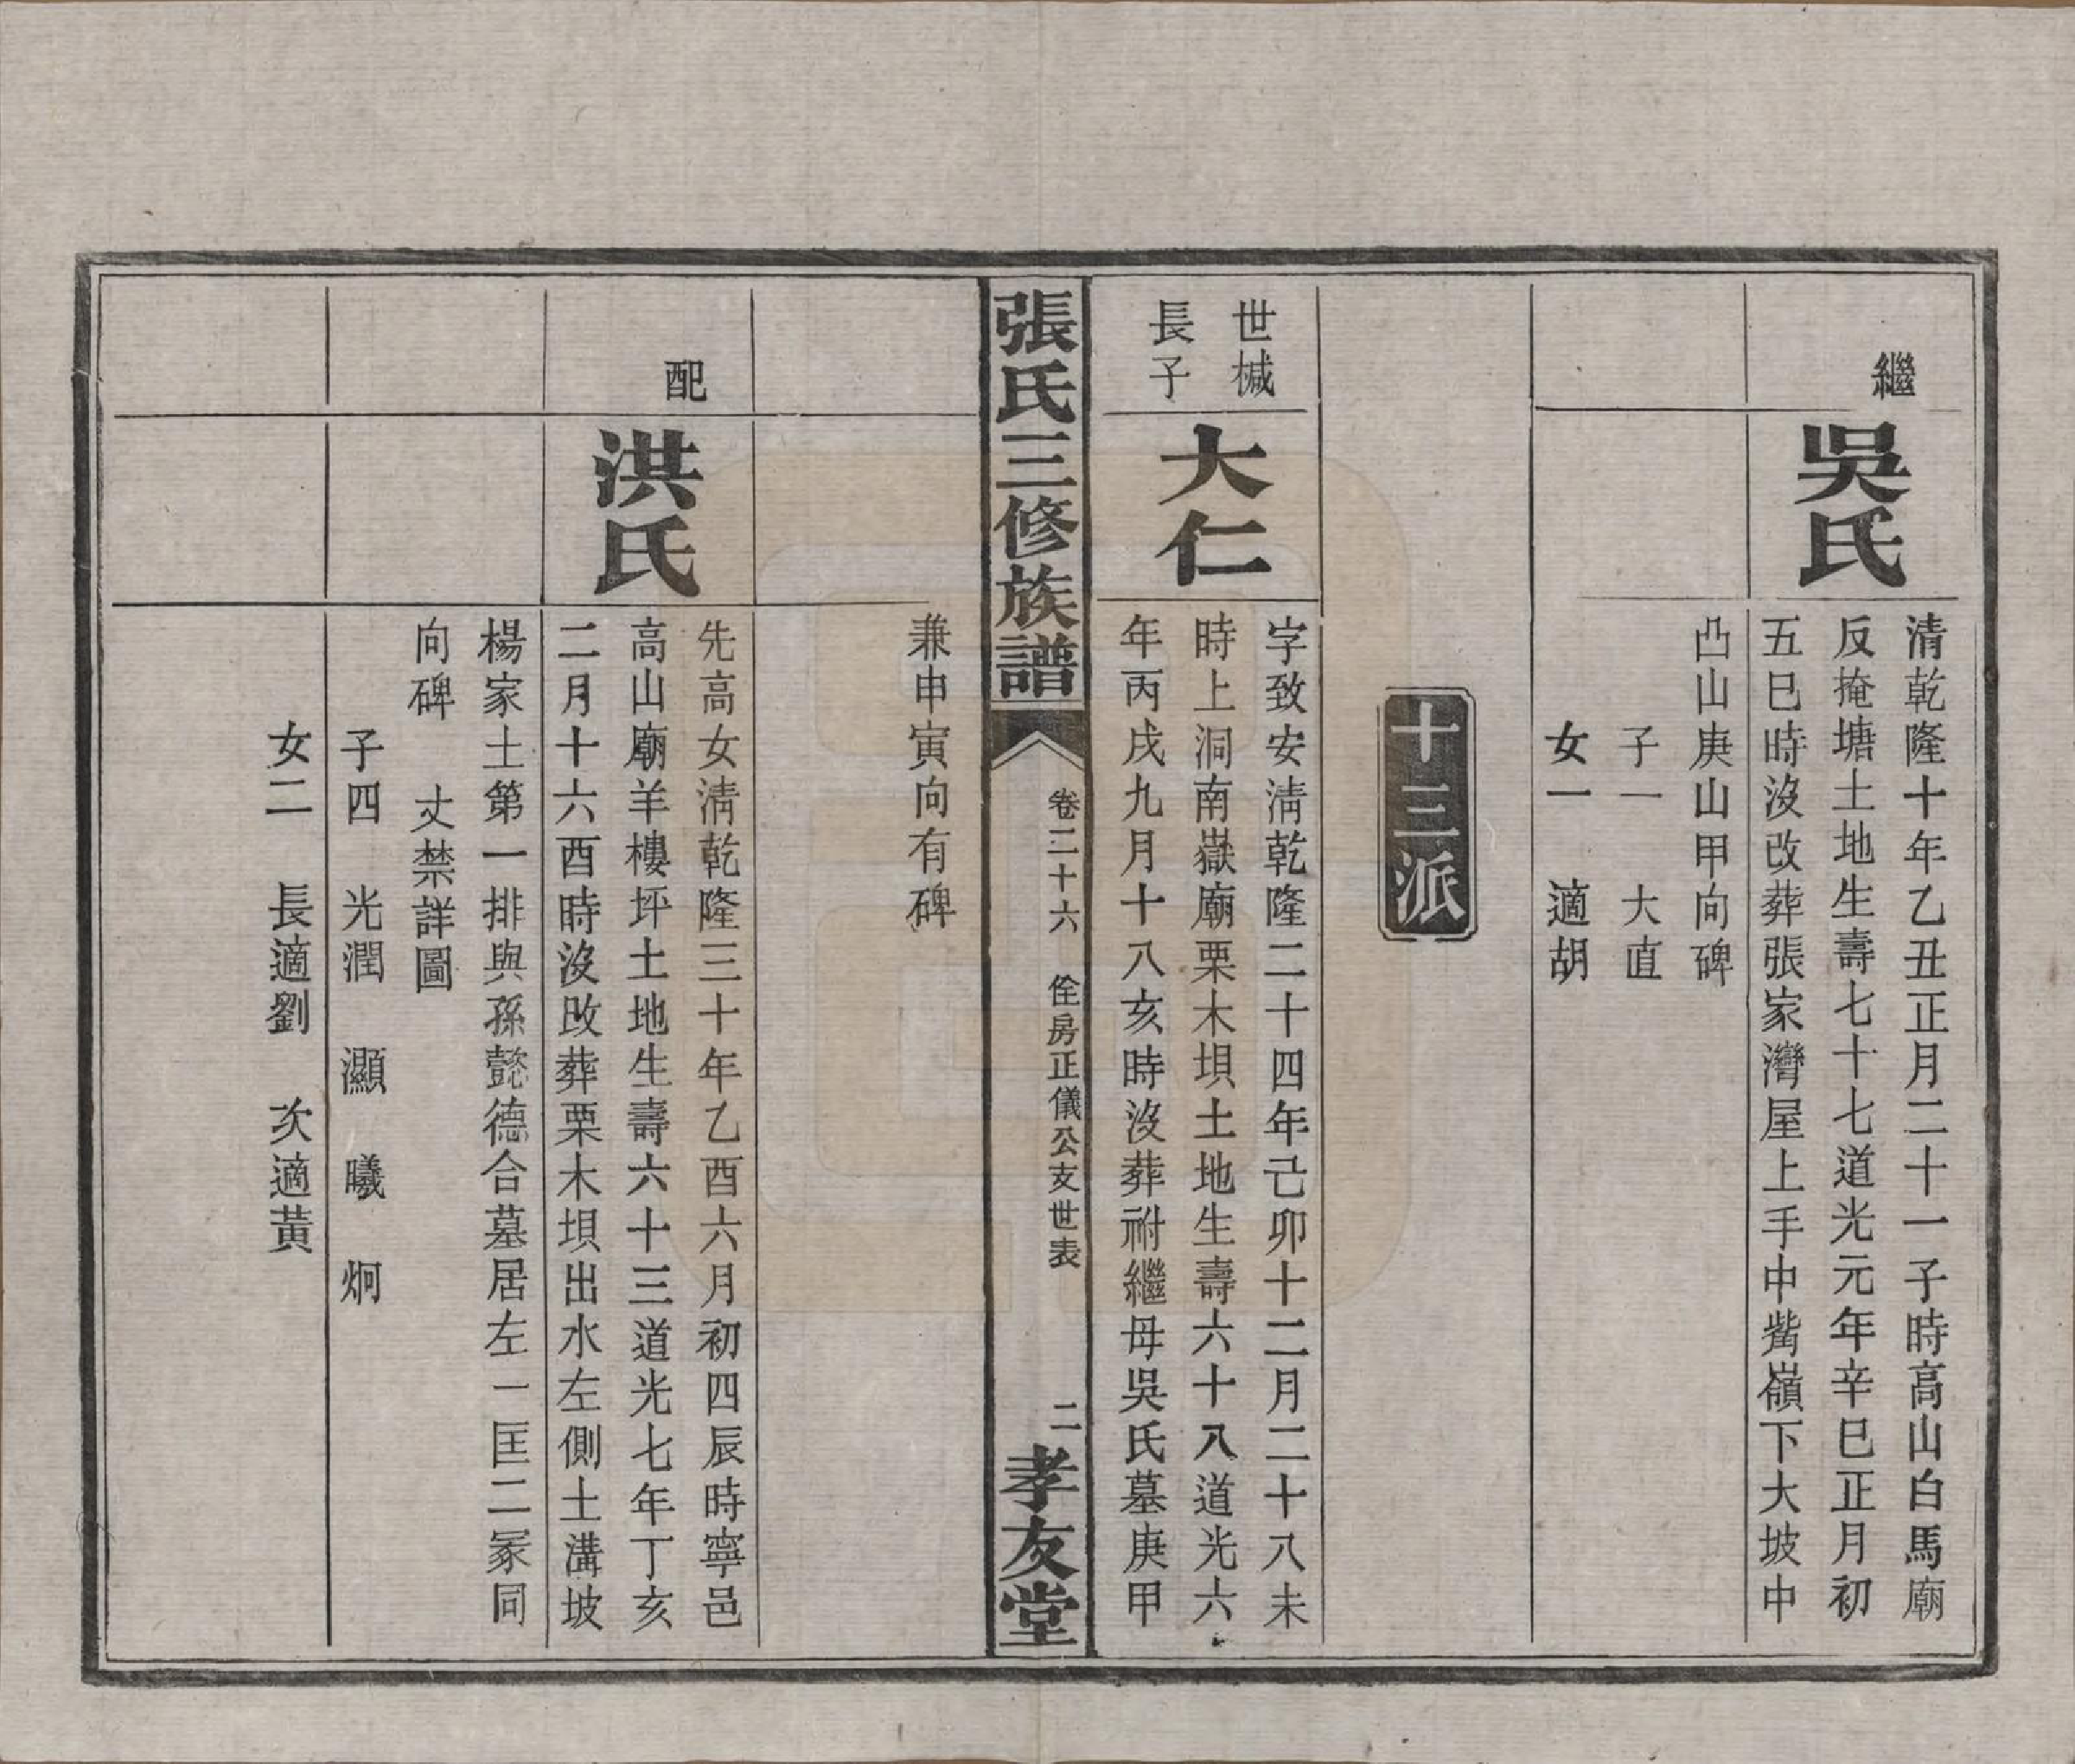 繼
吳氏
清乾隆十年乙丑正月二十一子時高山白馬廟
反掩塘土地生壽七十七道光元年辛巳正月初
五巳時沒改葬張家灣屋上手中觜嶺下大坡中
凸山庚山甲向碑
子一　大直
女一　適胡
十三派
世楲
長子
大仁
字致安淸乾隆二十四年己卯十二月二十八未
時上洞南嶽廟栗木垻土地生壽六十八道光六
年丙戌九月十八亥時沒葬祔繼母吳氏墓庚甲
張氏三修族譜
卷二十六　佺房正儀公支世表
二
孝友堂
兼申寅向有碑
配
洪氏
先高女淸乾隆三十年乙酉六月初四辰時寧邑
高山廟羊樓坪土地生壽六十三道光七年丁亥
二月十六酉時沒改葬栗木垻出水左側土溝坡
楊家土第一排與孫懿德合墓居左一匡二冢同
向碑　丈禁詳圖
子四　光潤　灦　曦　炯
女二　長適劉　次適黃